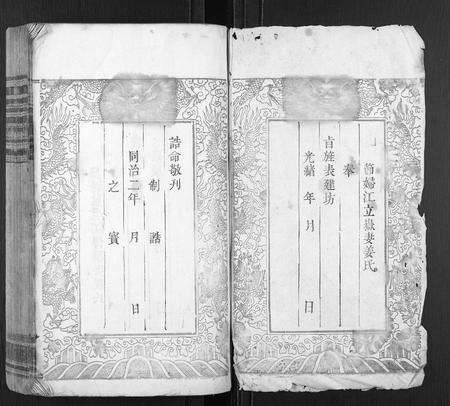 節婦江立嶽妻姜氏
奉
旨旌表建坊
光緒 年 月 日
誥命敬刋
制誥
同治二年 月 日
之寳